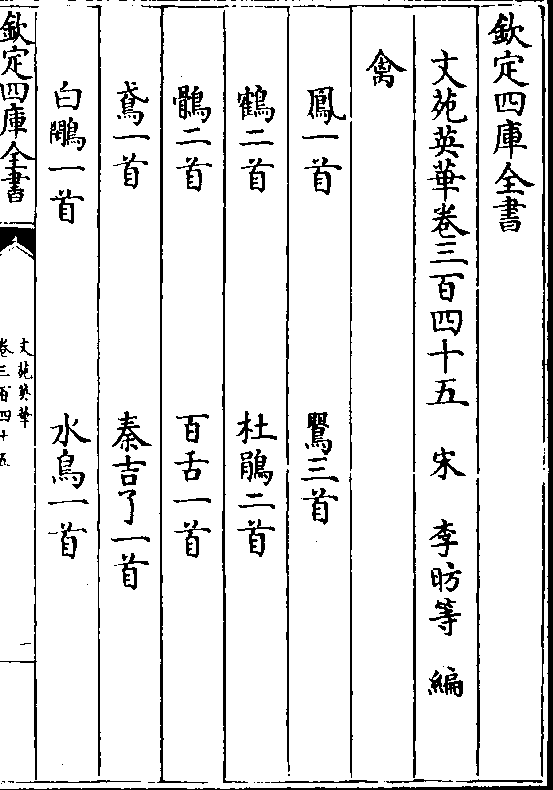 欽定四庫全書
文苑英華卷三百四十五　宋　李昉等　編
禽
鳳一首　鷖三首
鶴二首　杜鵑二首
鶻二首　百舌一首
鳶一首　秦吉了一首
白鵰一首　水鳥一首
欽定四庫全書
文苑英華
卷三百四十五
一